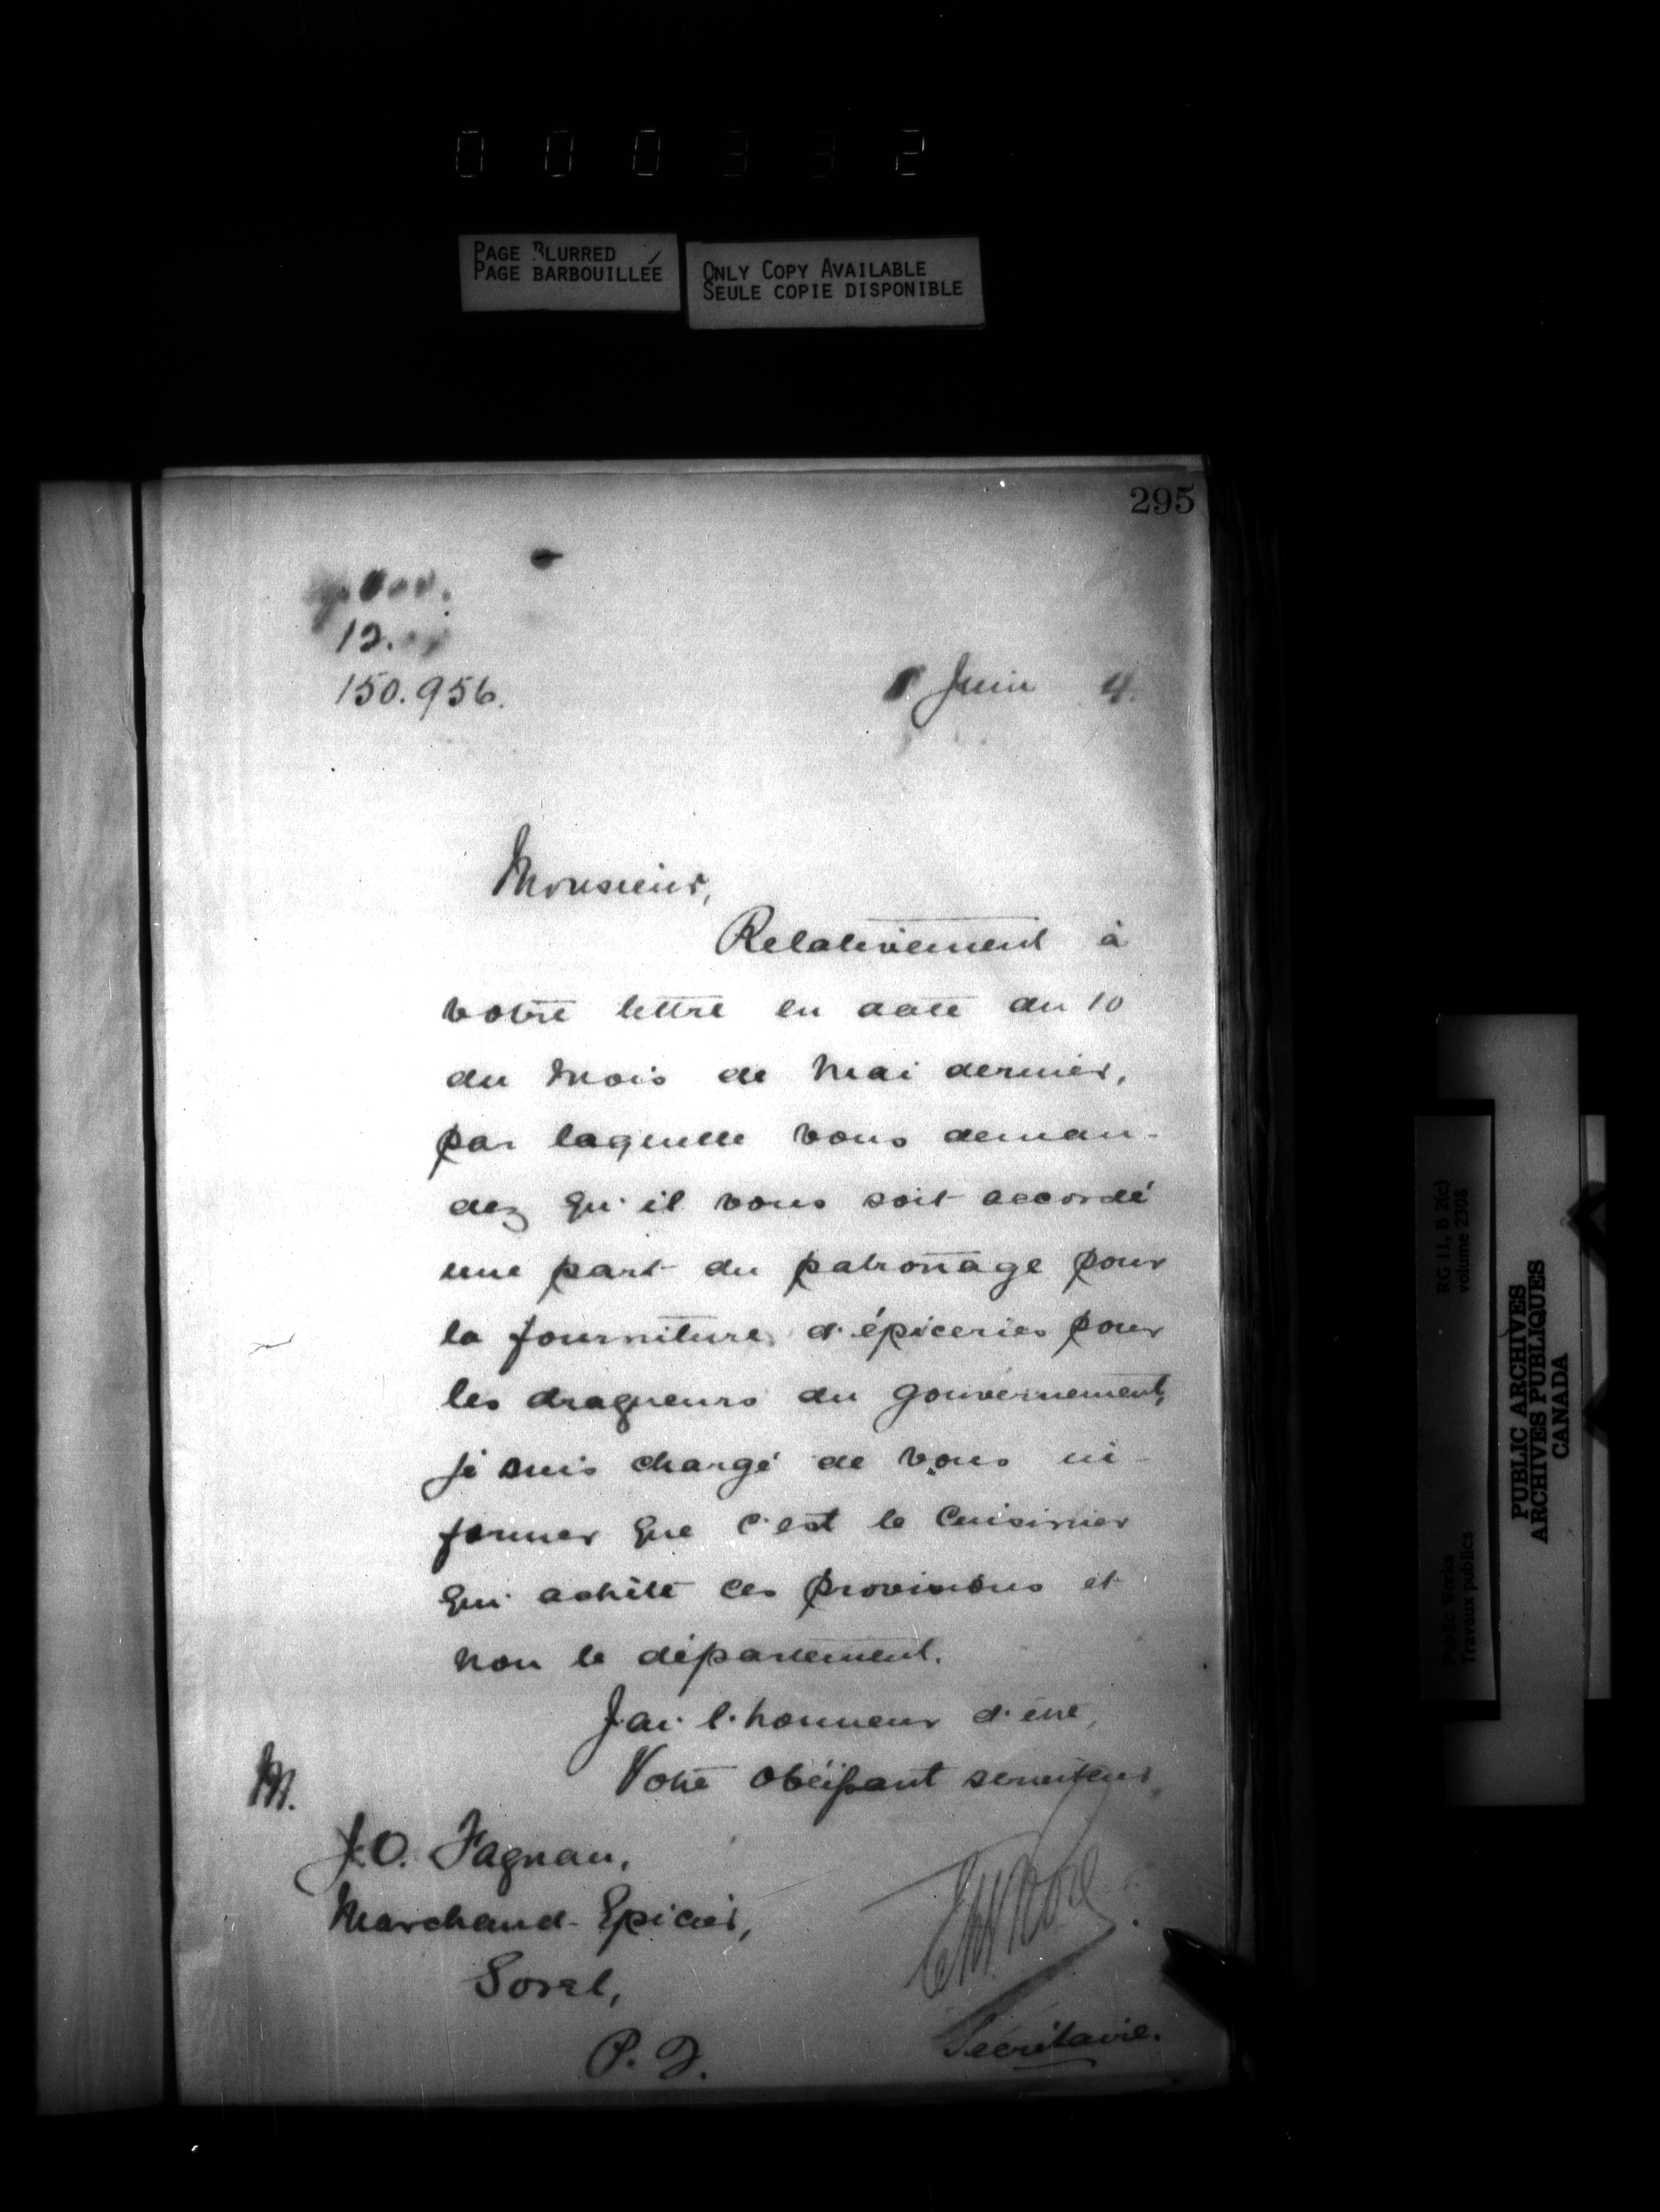 000332
PAGE BLURRED
PAGE BARBOUILLÉE
ONLY COPY AVAILABLE
SEULE COPIE DISPONIBLE
295
12.
150.956.
Juin 4.
Monsieur,
Relativement à
votre lettre en date du 10
du mois de Mai dernier,
par laquelle vous deman-
dez qu'il vous soit accordé
une part du patronage pour
la fourniture d'épiceries pour
les dragueurs du gouvernement,
je suis chargé de vous in-
former que c'est le cuisinier
qui achète ces provisions et
non le département.
J'ai l'honneur d'être,
Votre obéissant serviteur,
M.
J.O. Fagnan,
Marchand-Epicier,
Sorel,
P. Q.
Secrétaire.
RG 11, B 2(c)
volume 2308
Public Works
Travaux publics
PUBLIC ARCHIVES
ARCHIVES PUBLIQUES
CANADA